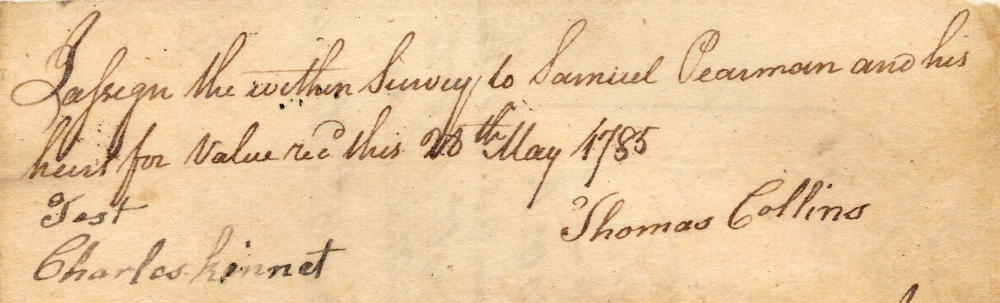 I assign the within Survey to Samuel Pearman and his
heirs for value recd this 28th May 1785
Test
Thomas Collins
Charles Kinnet